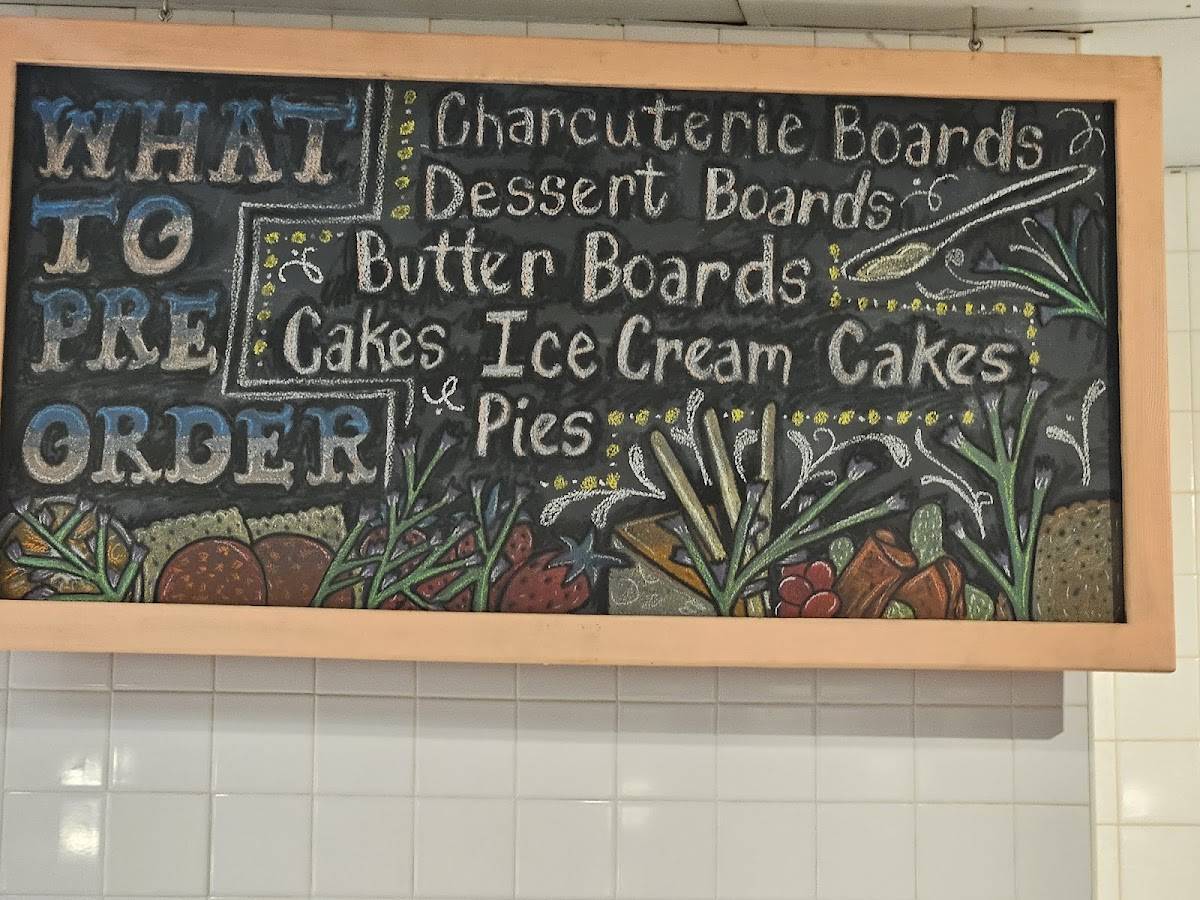 WHAT
TO
PRE
ORDER
Charcuterie Boards
Dessert Boards
Butter Boards
Cakes Ice Cream Cakes
Pies